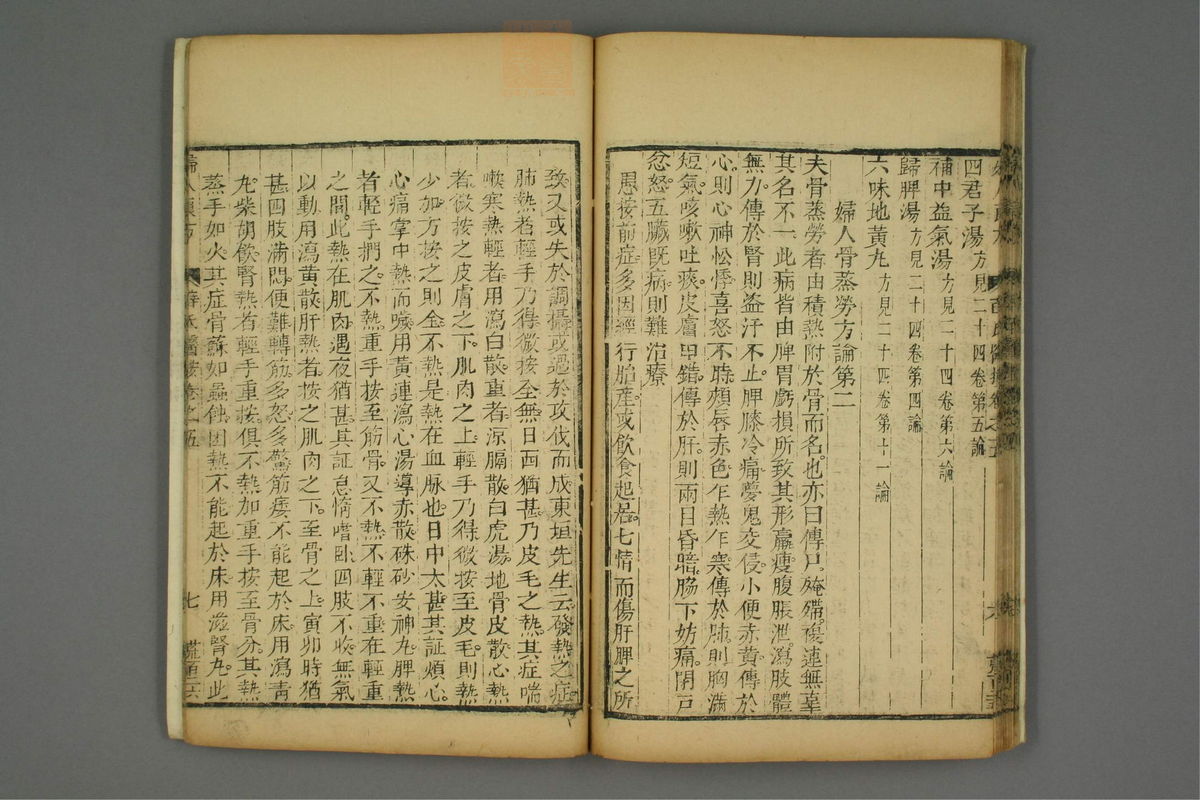 四君子湯方見二十四卷第五論
補中益氣湯方見二十四卷第六論
歸脾湯方見二十四卷第四論
六味地黄丸方見二十四卷第十一論
婦人骨蒸勞方論第二
夫骨蒸勞者由積熱附於骨而名也亦曰傳尸殗殜複連無辜
其名不一此病皆由脾胃虧損所致其形羸瘦腹脹泄瀉肢體
無力傳於腎則盗汗不止脾膝冷痛夢鬼交侵小便赤黄傳於
心則心神忪悸喜怒不時頰唇赤色乍熱乍寒傳於肺則胸滿
短氣咳嗽吐痰皮膚甲錯傳於肝則兩目昏暗脇下妨痛閉戸
忿怒五臟既病則難治療
愚按前症多因經行胎產或飲食起居七情而傷肝脾之所
致又或失於調攝或過於攻伐而成東垣先生云發熱之症
肺熱者輕手乃得微按全無日西猶甚乃皮毛之熱其症喘
嗽寒熱輕者用瀉白散重者凉膈散白虎湯地骨皮散心熱
者微按之皮膚之下肌肉之上輕手乃得微按至皮毛則熱
少加力按之則全不熱是熱在血脉也日中太甚其証煩心
心痛掌中熱而噦用黄連瀉心湯導赤散硃砂安神丸脾熱
者輕手捫之不熱重手按至筋骨又不熱不輕不重在輕重
之間此熱在肌肉遇夜猶甚其証怠惰嗜卧四肢不收無氣
以動用瀉黄散肝熱者按之肌肉之下至骨之上寅卯時猶
甚四肢滿悶便難轉筋多怒多驚筋痿不能起於床用瀉青
丸柴胡飲腎熱者輕手重按俱不熱加重手按至骨分其熱
蒸手如火其症骨蘇如蟲蝕困熱不能起於床用滋腎丸此
卷之五
七